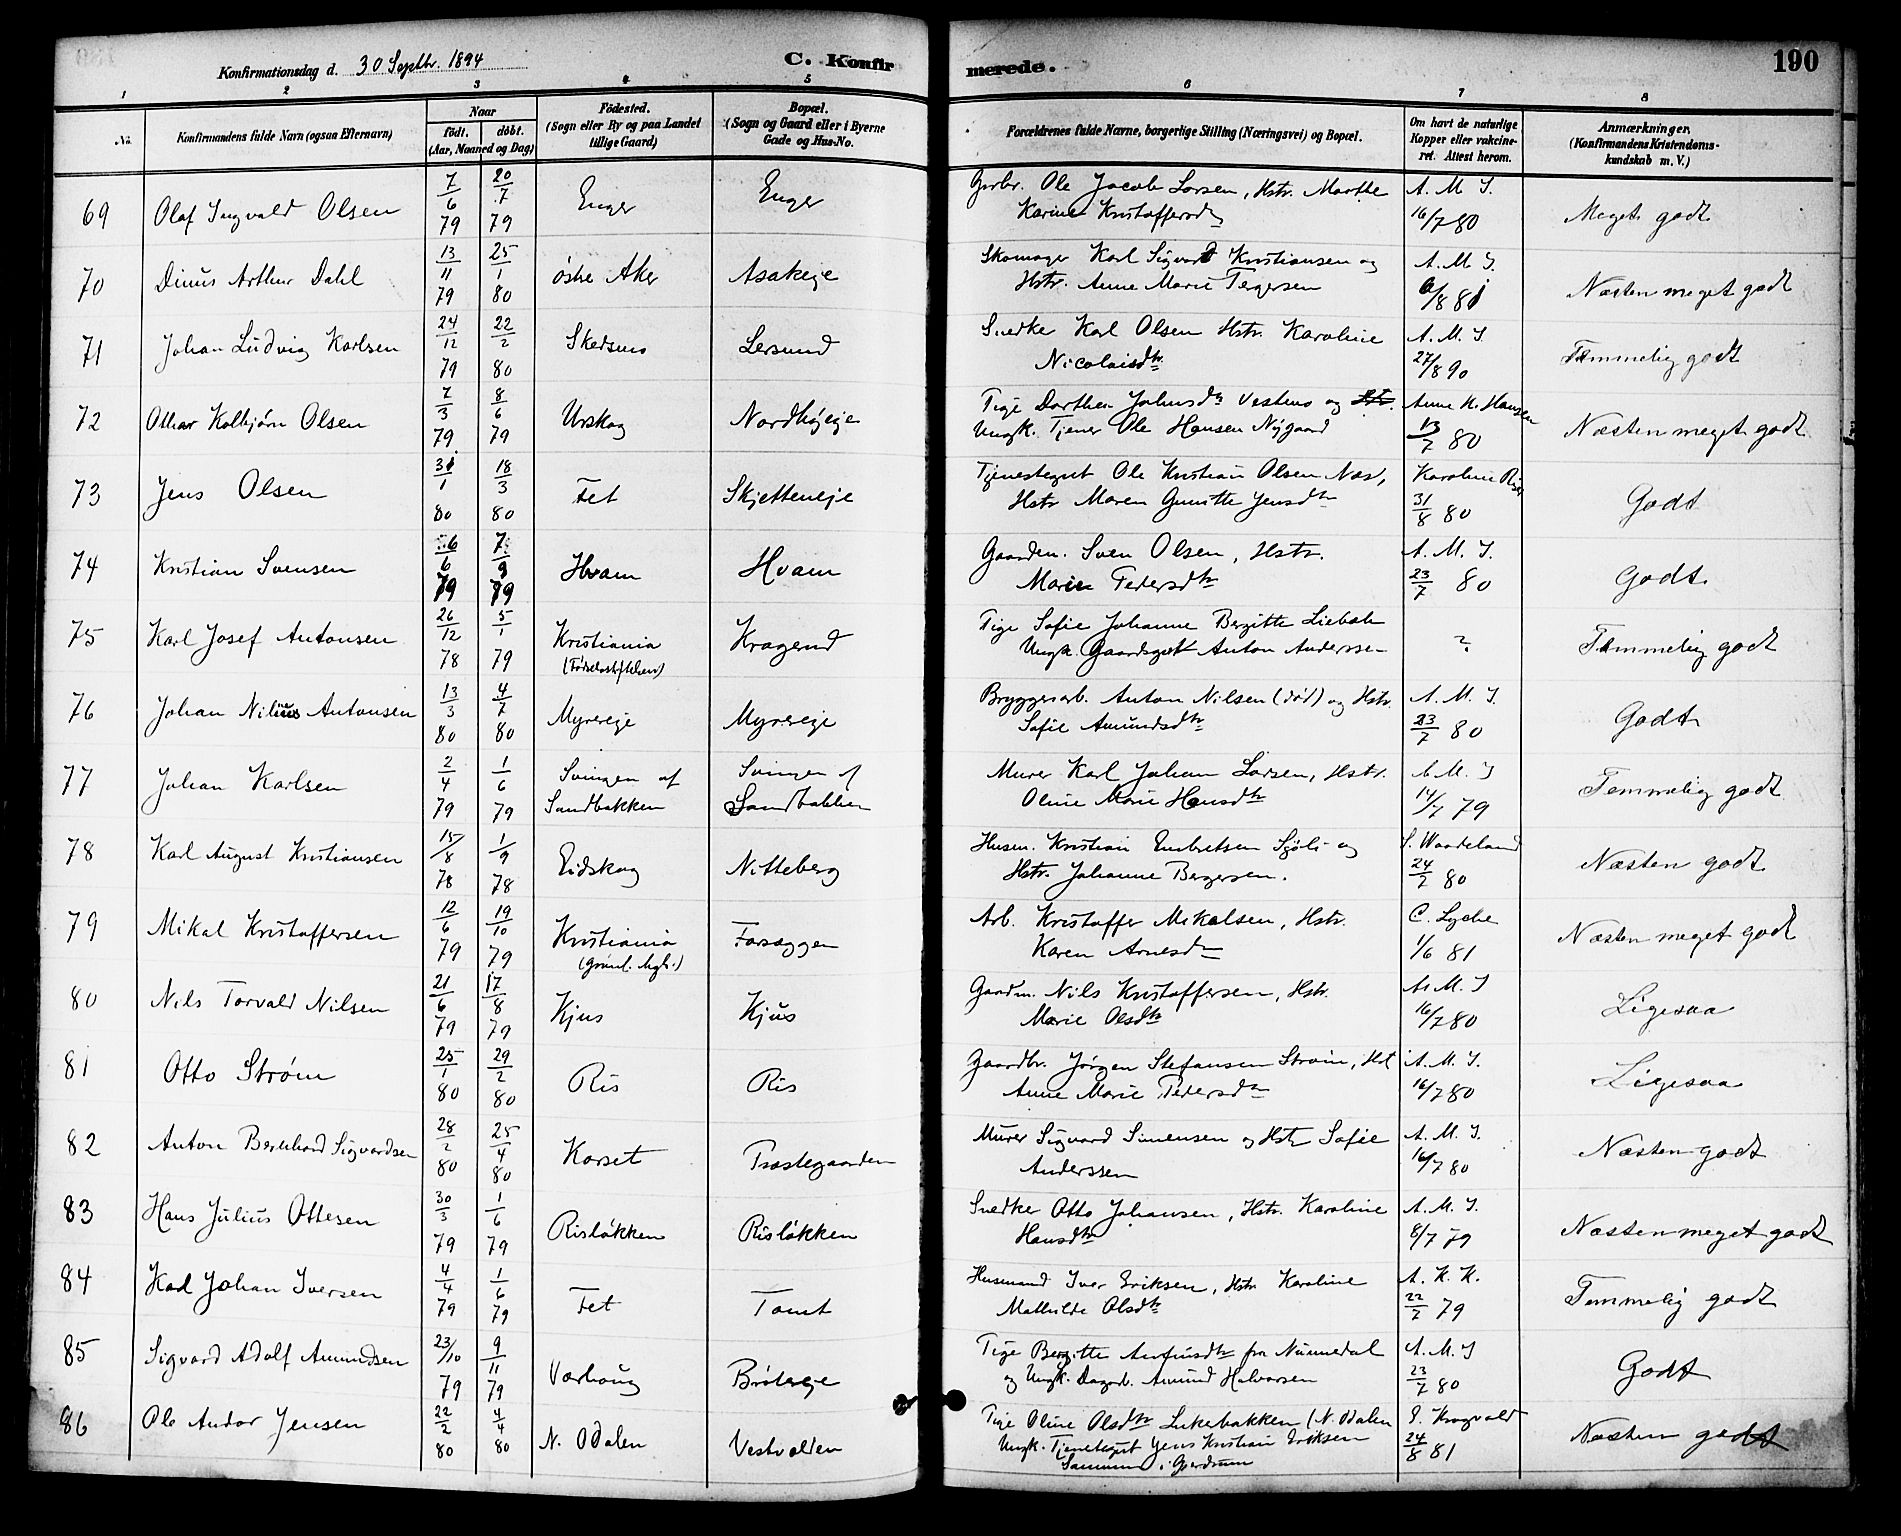 Konfirmationsdag d. 30 Septbr. 1894
C. Konfir
merede.
190
1 2 3 4 5 6 7 8
No.
Konfirmandens fulde Navn (ogsaa Efternavn)
Naar
födt. döbt.
(Aar, Maaned og Dag)
Födested.
(Sogn eller By og paa Landet
tillige Gaard)
Bopæl.
(Sogn og Gaard eller i Byerne
Gade og Hus-No.
Forældrenes fulde Navne, borgerlige Stilling (Næringsvei) og Bopæl.
Om havt de naturlige
Kopper eller vakcine-
ret. Attest herom.
Anmærkninger.
(Konfirmandens Kristendoms-
kundskab m. V.)
69 Olaf Ingvald Olsen 7/6 79 20/7 79 Enger Enger Ole Jacob Larsen, Hstr. Marthe
Karine Kristoffersd. A. M. I. 16/7 80 Meget godt
70 Dinus Arthur Dahl 13/11 79 25/1 80 østre Aker Asakeie Skomager Karl Sigvard Kristiansen og
Hstr. Anne Marie Tergersen A. M. I. /8 81 Næsten meget godt
71 Johan Ludvig Karlsen 24/12 79 22/2 80 Skedsmo Lersund Snedke Karl Olsen Hstr. Karoline
Nicolaisdtr. A. M. I. 27/8 90 Temmelig godt
72 Othar Kolbjørn Olsen 7/3 79 8/6 79 Urskog Nordbyeje Pige Dorthea Johnsdtr Vestmo og Hstr.
Ungk. Tjener Ole Hansen Nygaard Anne K. Hansen 13/7 80 Næsten meget godt
73 Jens Olsen 31/1 80 18/3 80 Fet Skjetteneje Tjenestegut Ole Kristian Olsen Næs,
Hstr Maren Gunitte Jensdtr Karoline 31/8 80 Godt
74 Kristian Svensen 6/6 79 7/9 79 Hvam Hvam Gaardm. Sven Olsen, Hstr.
Marie Pedersdtr A. M. I. 23/7 80 Godt
75 Karl Josef Antonsen 26/12 78 5/1 79 Kristiania
(Fødselsstiftelsen) Kragerud Pige Sofie Johanne Bergitte Liebak
Ungk. Gaardsgut Anton Anderssen ? Temmelig godt
76 Johan Nilius Antonsen 13/3 80 4/7 80 Myrereje Myrereje Bryggerarb. Anton Nilsen (død) og Hstr.
Sofie Amundsdtr A. M. I. 23/7 80 Godt
77 Johan Karlsen 2/4 79 1/6 79 Svingen af
Sandbakken Svingen af
Sandbakken Murer Karl Johan Larsen, Hstr.
Oline Marie Hansdtr A. M. I 14/7 79 Temmelig godt
78 Karl August Kristiansen 15/8 78 1/9 78 Eidskog Nitteberg Husm. Kristian Embretsen Sjøli og
Hstr. Johanne Bergersen. S. Waadeland 24/7 80 Næsten godt
79 Mikal Kristoffersen 12/6 79 19/10 79 Kristiania
(Grønl. Mgh.) Farseggen Arb. Kristoffer Mikalsen, Hstr.
Karen Arnesd C. Lyche 1/6 81 Næsten meget godt
80 Nils Torvald Nilsen 21/6 79 17/8 79 Kjus Kjus Gaardm. Nils Kristoffersen, Hstr.
Marie Olsdtr A. M. I 16/7 80 Ligesaa
81 Otto Strøm 25/1 80 29/2 80 Ris Ris Gaardbr. Jørgen Stefansen Strøm, Hst
Anne Marie Pedersdtr A. M. I. 16/7 80 Ligesaa
82 Anton Bernhard Sigvardsen 28/2 80 25/4 80 Korset Præstegaarden Murer Sigvard Simensen og Hstr Sofie
Anderssen A. M. I. 16/7 80 Næsten godt
83 Hans Julius Ottesen 30/3 79 1/6 79 Risløkken Risløkken Snedke Otto Johansen, Hstr. Karoline
Hansdtr A. M. I. 8/7 79 Næsten meget godt
84 Karl Johan Iversen 4/4 79 1/6 79 Fet Tomt Husmand Iver Eriksen, Hstr Karoline
Mathilde Olsdtr A. K. K. 22/7 79 Temmelig godt
85 Sigvard Adolf Amundsen 23/10 79 9/11 79 Varhoug Bröterje Pige Bergitte Anfinsdtr fra Numedal
og Ungk. Dagarb. Amund Halvorsen A. M. I 23/7 80 Godt
86 Ole Andor Jensen 22/2 80 4/4 80 N. Odalen Vestvolden Pige Oline Olsdtr Lukebakken (N. Odalen
Ungk. Tjenestegut Jens Kristian Eriksen
i Gjerdrum Kragvald 24/8 81 Næsten godt